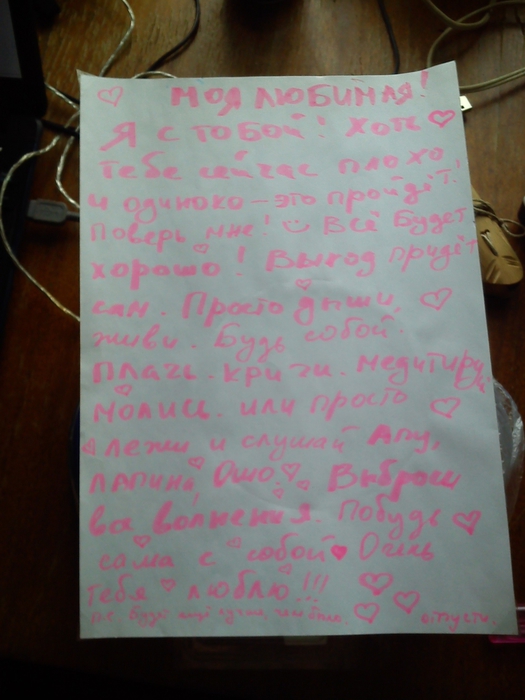 моя любимая!
Я с тобой! Хоть
тебе сейчас плохо,
и одиноко - это пройдёт!
Поверь мне! Всё будет
хорошо! Выход придёт
сам. Просто дыши,
живи. Будь собой.
плачь. кричи. медитируй
молись. или просто
лежи и слушай
Ошо. Выброси
все волнения. Побудь
сама с собой Очень
тебя люблю!!!
P.S. Будет ещё лучше, чем было. отпусти.